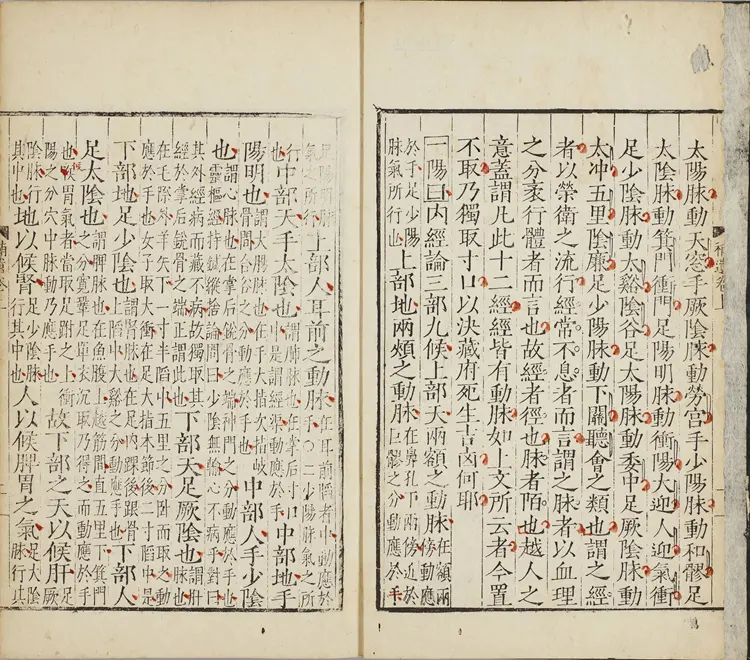 太陽脉動天窓手厥陰脉動勞宮手少陽脉動和髎足
太陰脉動箕門衝門足陽明脉動衝陽大迎人迎氣衝
足少陰脉動大谿陰谷足太陽脉動委中足厥陰脉動
太冲五里陰廉足少陽脉動下關聽會之類也謂之經
者以榮衛之流行經常不息者而言謂之脉者以血理
之分衺行體者而言也故經者徑也脉者陌也越人之
意蓋謂凡此十二經經皆有動脉如上文所云者今置
不取乃獨取寸口以決藏府死生吉凶何耶
一陽曰内經論三部九候上部天兩額之動脉在額兩傍動應
於手足少陽脉氣所行也上部地兩頰之動脉在鼻孔下兩傍近於巨髎之分動應於手
足陽明脉氣之所行上部人耳前之動脉在耳前陷者中動應於手○手少陽脉氣之所
行也中部天手太陰也謂肺脉也在掌后寸口中是謂經渠動應於手中部地手
陽明也謂大腸脉也在手大指次指歧骨間合谷之分動應於手也中部人手少陰
也謂心脉也在掌后銳骨之端神門之分動應於手也靈樞經持鍼縱捨論問曰少陰無輸心不病乎對曰
其外經病而藏不病故獨取其經於掌后銳骨之端正謂此也下部天足厥陰也謂肝脉也
在毛際外羊矢下一寸半陷中五里之分卧而取之動應於手也女子取大衝在足大指本節後二寸陷中是
下部地足少陰也謂腎脉也在足内踝後跟骨上陷中大谿之分動應手也下部人
足太陰也謂脾脉也在魚腹上越筋間直五里下箕門之分寬鞏足單衣沉取乃得之而動應於手
也候胃氣者當取足跗之上衝陽之分穴中脉動乃應手也故下部之天以候肝足厥
陰脉行其中也地以候腎足少陰脉行其中也人以候脾胃之氣足太陰脉行其
補遺卷上